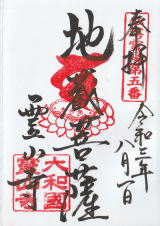 奉拝
第五番
令和三年
八月一日
地蔵菩薩
霊山寺
大和國
霊山寺